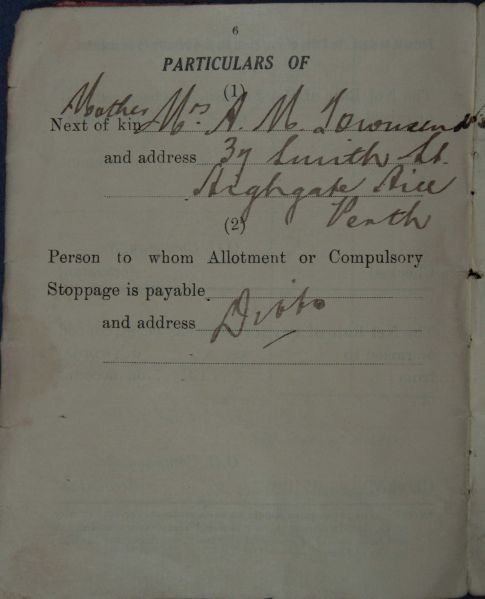 6
PARTICULARS OF
(1)
Mother
Next of kin Mrs A. M. Townsend
and address 37 Smith St.
Highgate Hill
Perth
(2)
Person to whom Allotment or Compulsory
Stoppage is payable
and address Ditto